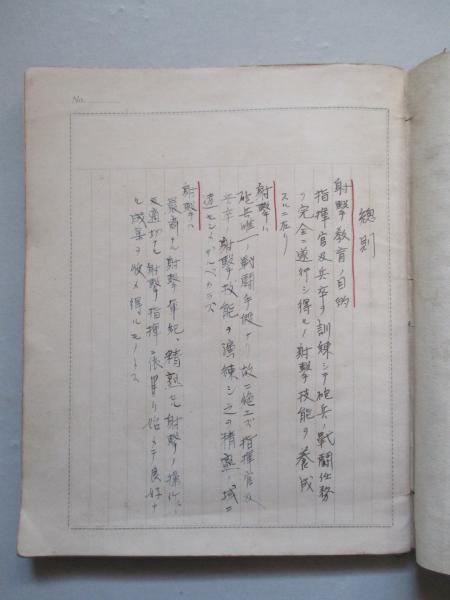 No.
總則
射擊敎育ノ目的
指揮官及兵卒ヲ訓練シテ砲兵ノ戰鬪任務
ヲ完全ニ遂行シ得ルノ射擊技能ヲ養成
スルニ在リ
射擊ハ
砲兵唯一ノ戰鬪手段ナリ故ニ絶エズ指揮官及
兵卒ノ射擊技能ヲ演練シ之ヲ精熟ノ域ニ
達セシメザルベカラズ
射擊ハ
嚴肅ナル射擊軍紀、精熟セル射擊ノ操作
適切ナル射擊指揮ト 始メテ良好ナ
ル成果ヲ收メ得ルモノトス